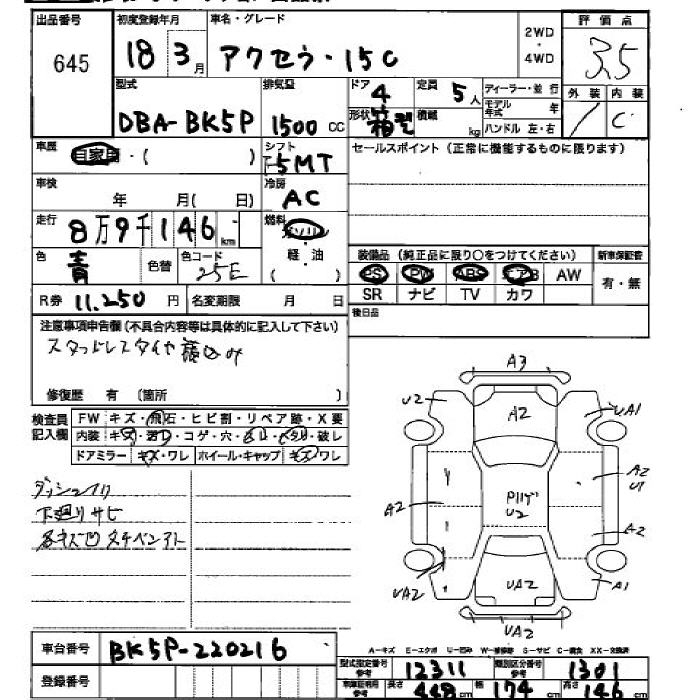 出品番号 初度登録年月 車名・グレード 2WD・4WD 評価点
645 18 3月 アクセラ・15C 3.5
型式 排気量 ドア 4 定員 5人 ディーラー・並行 外装 内装
DBA-BK5P 1500cc 形状 箱型 積載 kg モデル年式 年 ハンドル 左・右 C
車歴 自家用・( ) シフト F5MT セールスポイント(正常に機能するものに限ります)
車検 年 月(日) 冷房 AC
走行 8万9千146km 燃料 ガソリン
色 青 色替 色コード 25E 軽・油 ( )
装備品(純正品に限り○をつけてください) 新車保証書
PS PW ABS エアB AW 有・無
SR ナビ TV カワ
R券 11.250円 名変期限 月 日
後日品
注意事項申告欄(不具合内容等は具体的に記入して下さい)
スタッドレスタイヤ積込み
修復歴 有(箇所 )
検査員記入欄 FW キズ・飛石・ヒビ割・リペア跡・X要
内装 キズ・コゲ・穴・破レ
ドアミラー キズ・ワレ ホイール・キャップ キズ・ワレ
下廻りサビ
A3
U2 A2 UA1
A2 U1
A2 U2 A2
UA2 UA2 A1
UA2
A-キズ E-エクボ U-凹み W-補修跡 S-サビ C-腐食 XX-交換済
車台番号 BK5P-220216
登録番号
型式指定番号 参考 12311 類別区分番号 参考 1301
車検証利用 参考 長さ 448cm 幅 174cm 高さ 146cm